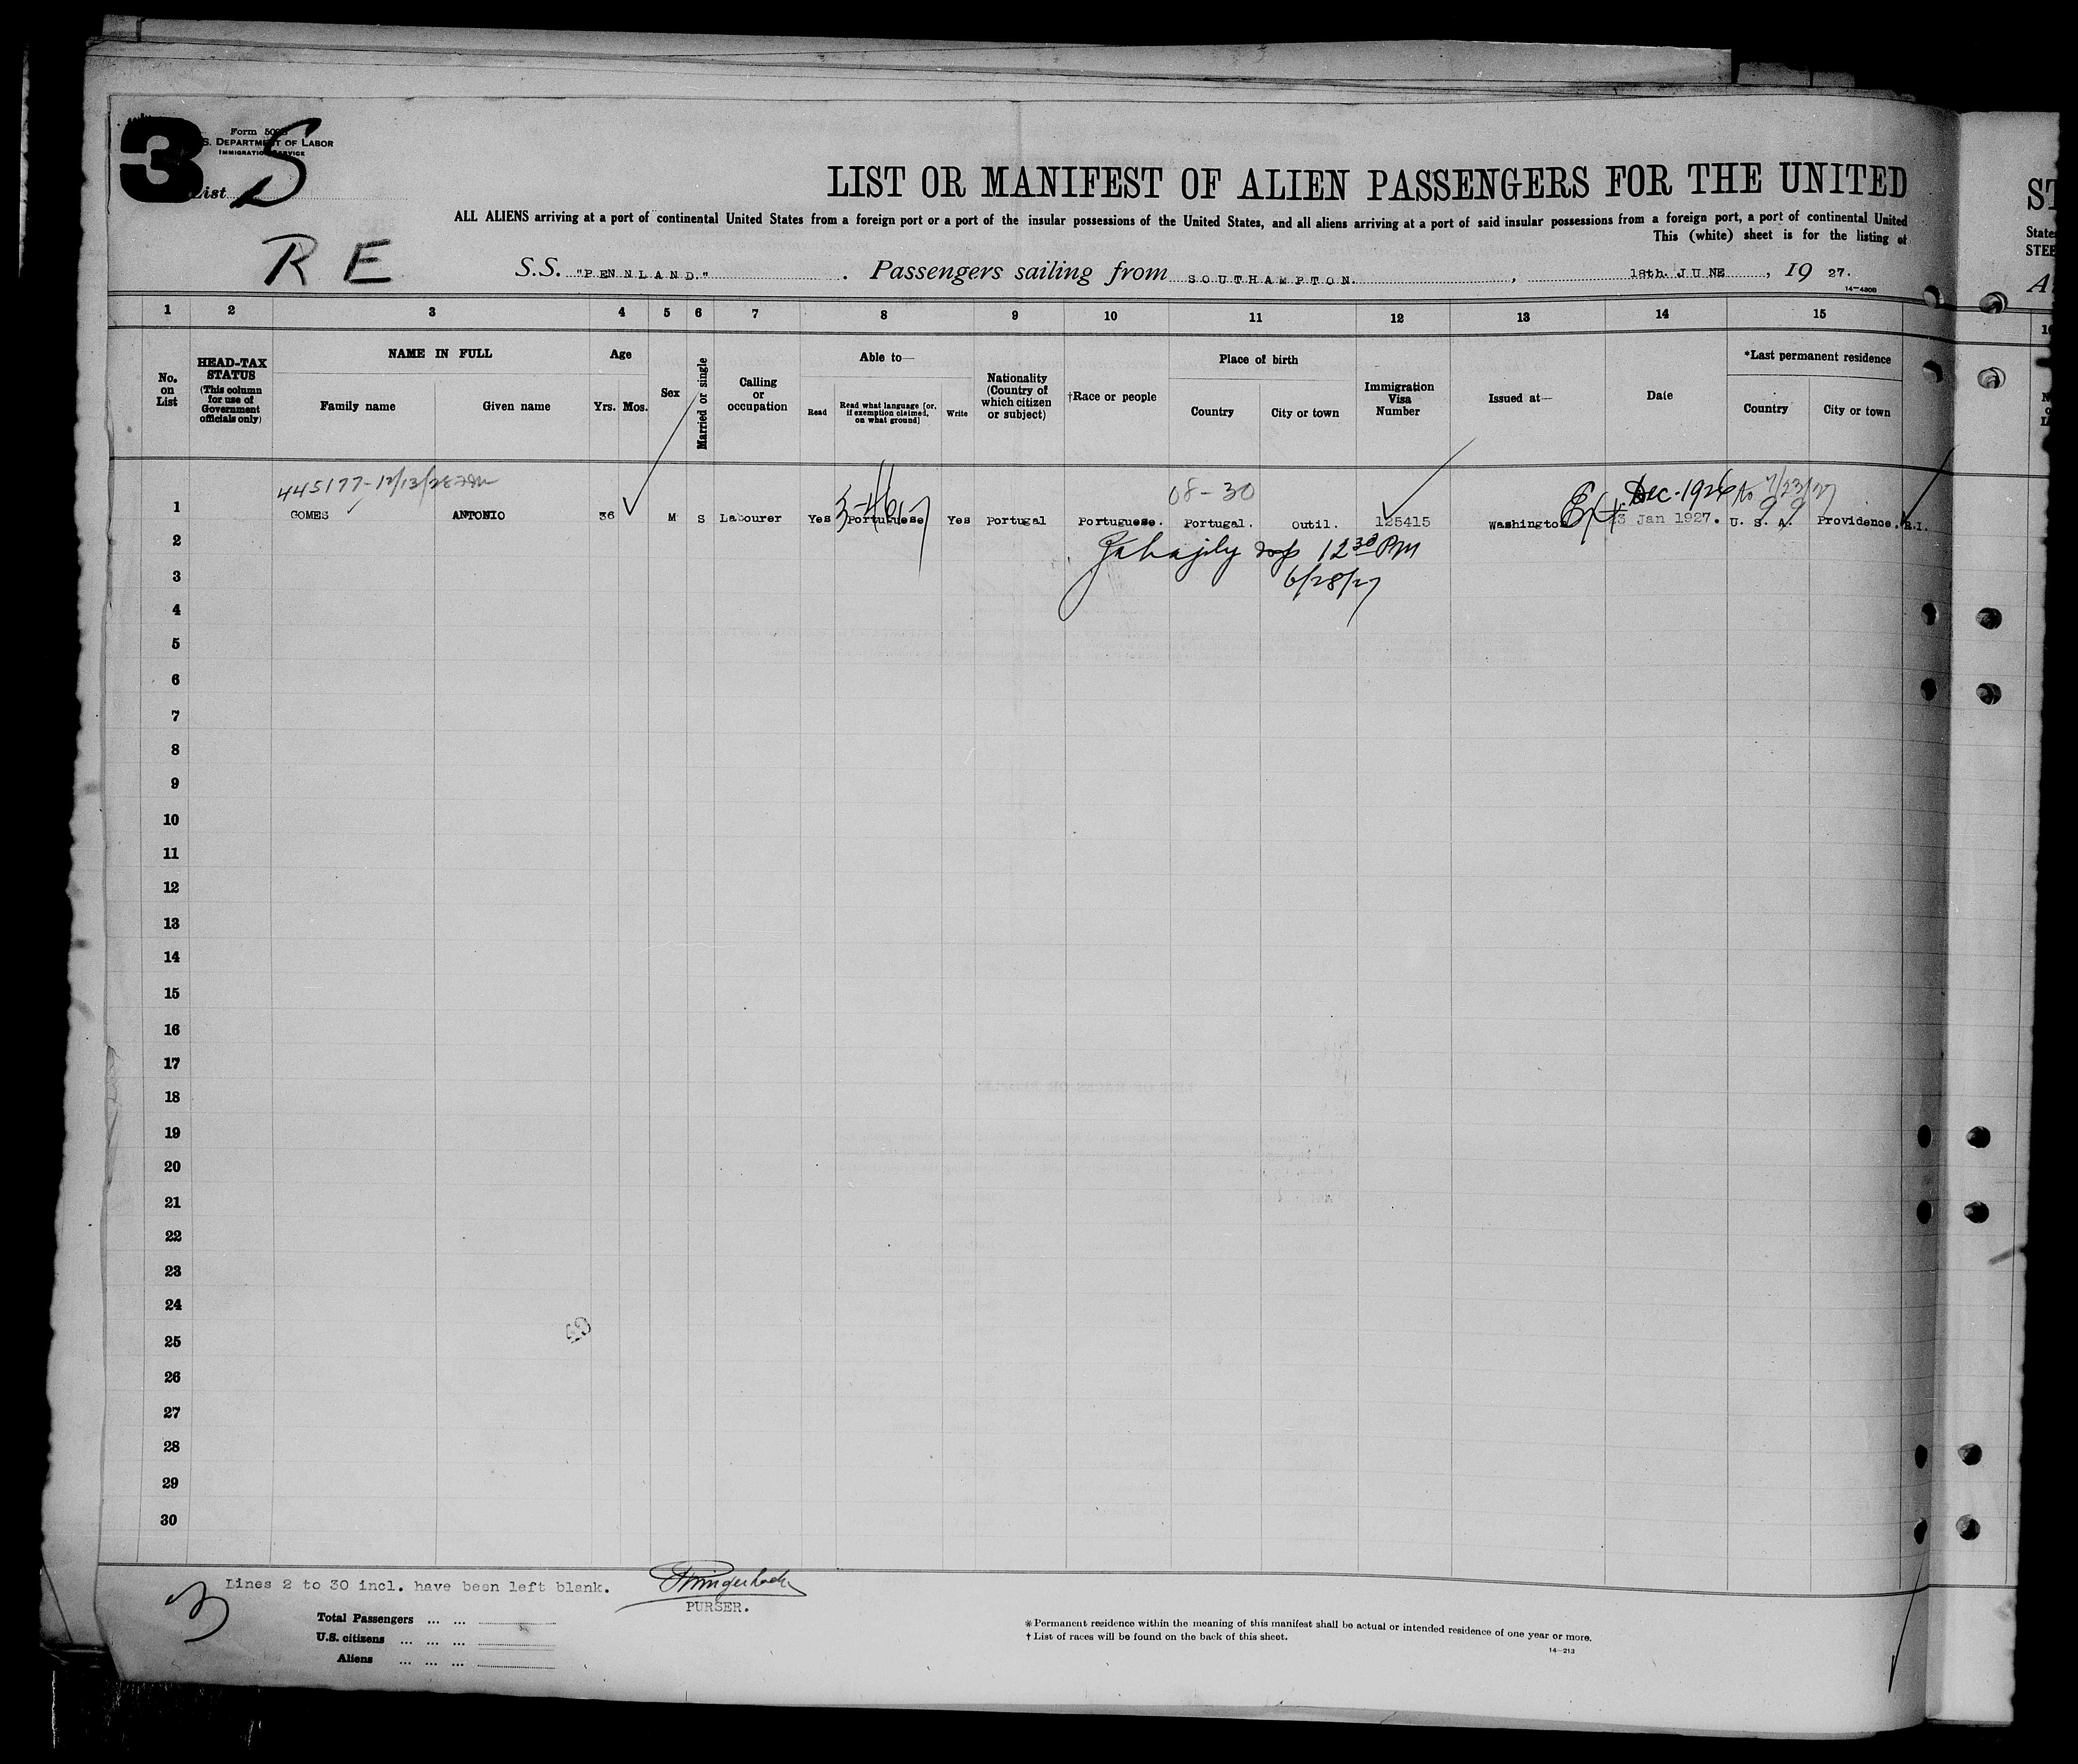 3
Form 500
S. DEPARTMENT OF LABOR
IMMIGRATION SERVICE
List 5
LIST OR MANIFEST OF ALIEN PASSENGERS FOR THE UNITED
ALL ALIENS arriving at a port of continental United States from a foreign port or a port of the insular possessions of the United States, and all aliens arriving at a port of said insular possessions from a foreign port, a port of continental United
This (white) sheet is for the listing of
R E
S.S. "PENNLAND." Passengers sailing from SOUTHAMPTON. , 18th. JUNE , 19 27.
14-430B
1 2 3 4 5 6 7 8 9 10 11 12 13 14 15
No. on List
HEAD-TAX STATUS (This column for use of Government officials only)
NAME IN FULL
Family name Given name
Age
Yrs. Mos.
Sex
Married or single
Calling or occupation
Able to—
Read Read what language [or, if exemption claimed, on what ground] Write
Nationality (Country of which citizen or subject)
†Race or people
Place of birth
Country City or town
Immigration Visa Number
Issued at—
Date
*Last permanent residence
Country City or town
445177-12/13/28 08-30 Ext. Dec-1926 to 7/23/27
1 GOMES ANTONIO 36 M S Labourer Yes Portuguese Yes Portugal Portuguese. Portugal. Outil. 125415 Washington 23 Jan 1927. U. S. A. Providence. R.I.
99
2 12 30 PM
3 6/28/27
4
5
6
7
8
9
10
11
12
13
14
15
16
17
18
19
20
21
22
23
24
25
26
27
28
29
30
Lines 2 to 30 incl. have been left blank.
PURSER.
3
Total Passengers ... ...
U.S. citizens ... ... ...
Aliens ... ... ...
* Permanent residence within the meaning of this manifest shall be actual or intended residence of one year or more.
† List of races will be found on the back of this sheet.
14-213
ST
States
STEE